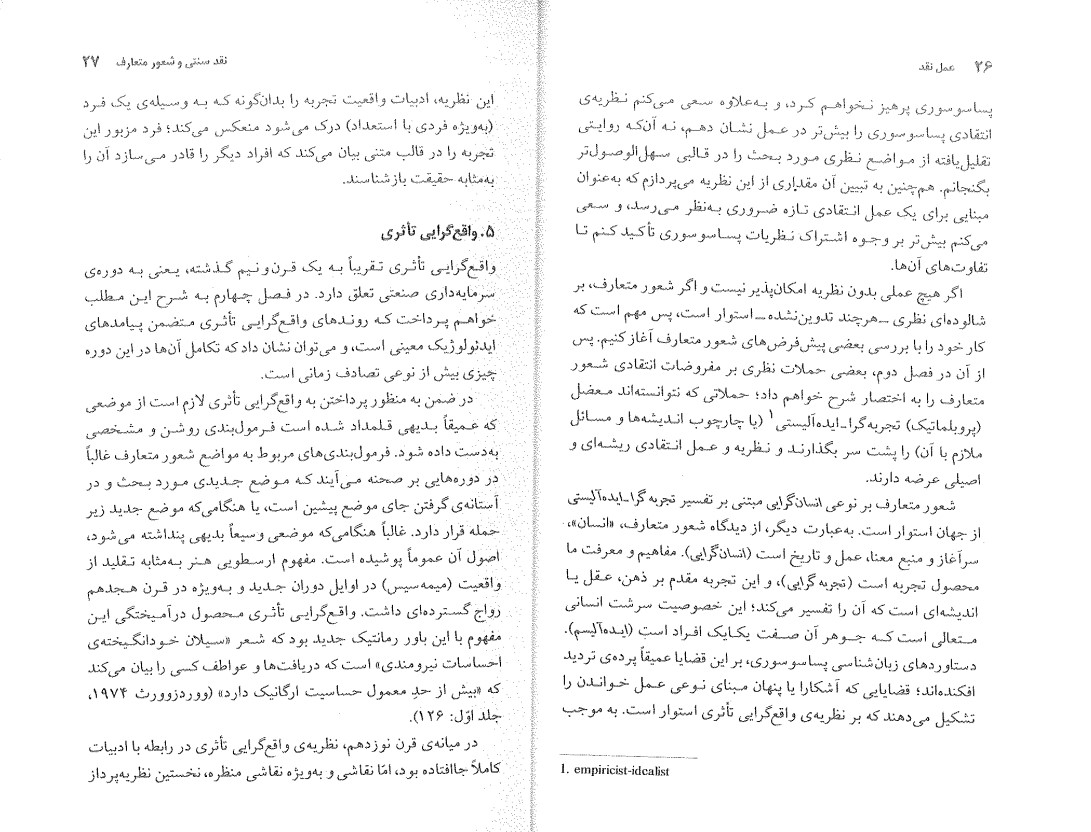 ۲۶ عمل نقد
پساسوسوری پرهیز نخواهم کرد، و به‌علاوه سعی می‌کنم نظریه‌ی
انتقادی پساسوسوری را بیش‌تر در عمل نشان دهم، نه آن‌که روایتی
تقلیل‌یافته از مواضع نظری مورد بحث را در قالبی سهل‌الوصول‌تر
بگنجانم. هم‌چنین به تبیین آن مقداری از این نظریه می‌پردازم که به‌عنوان
مبنایی برای یک عمل انتقادی تازه ضروری به‌نظر می‌رسد، و سعی
می‌کنم بیش‌تر بر وجوه اشتراک نظریات پساسوسوری تأکید کنم تا
تفاوت‌های آن‌ها.
اگر هیچ عملی بدون نظریه امکان‌پذیر نیست و اگر شعور متعارف، بر
شالوده‌ای نظری ـ هرچند تدوین‌نشده ـ استوار است، پس مهم است که
کار خود را با بررسی بعضی پیش‌فرض‌های شعور متعارف آغاز کنیم. پس
از آن در فصل دوم، بعضی حملات نظری بر مفروضات انتقادی شعور
متعارف را به اختصار شرح خواهم داد؛ حملاتی که نتوانسته‌اند معضل
(پروبلماتیک) تجربه‌گرا-ایده‌آلیستی۱ (یا چارچوب اندیشه‌ها و مسائل
ملازم با آن) را پشت سر بگذارند و نظریه و عمل انتقادی ریشه‌ای و
اصیلی عرضه دارند.
شعور متعارف بر نوعی انسان‌گرایی مبتنی بر تفسیر تجربه‌گرا-ایده‌آلیستی
از جهان استوار است. به‌عبارت دیگر، از دیدگاه شعور متعارف، «انسان»،
سرآغاز و منبع معنا، عمل و تاریخ است (انسان‌گرایی). مفاهیم و معرفت ما
محصول تجربه است (تجربه‌گرایی)، و این تجربه مقدم بر ذهن، عقل یا
اندیشه‌ای است که آن را تفسیر می‌کند؛ این خصوصیت سرشت انسانی
متعالی است که جوهر آن صفت یکایک افراد است (ایده‌آلیسم).
دستاوردهای زبان‌شناسی پساسوسوری، بر این قضایا عمیقاً پرده‌ی تردید
افکنده‌اند؛ قضایایی که آشکارا یا پنهان مبنای نوعی عمل خواندن را
تشکیل می‌دهند که بر نظریه‌ی واقع‌گرایی تأثری استوار است. به موجب
1. empiricist-idealist
نقد سنتی و شعور متعارف ۲۷
این نظریه، ادبیات واقعیت تجربه را بدان‌گونه که به وسیله‌ی یک فرد
(به‌ویژه فردی با استعداد) درک می‌شود منعکس می‌کند؛ فرد مزبور این
تجربه را در قالب متنی بیان می‌کند که افراد دیگر را قادر می‌سازد آن را
به‌مثابه حقیقت بازشناسند.
۵. واقع‌گرایی تأثری
واقع‌گرایی تأثری تقریباً به یک قرن‌ونیم گذشته، یعنی به دوره‌ی
سرمایه‌داری صنعتی تعلق دارد. در فصل چهارم به شرح این مطلب
خواهم پرداخت که روندهای واقع‌گرایی تأثری متضمن پیامدهای
ایدئولوژیک معینی است، و می‌توان نشان داد که تکامل آن‌ها در این دوره
چیزی بیش از نوعی تصادف زمانی است.
در ضمن به منظور پرداختن به واقع‌گرایی تأثری لازم است از موضعی
که عمیقاً بدیهی قلمداد شده است فرمول‌بندی روشن و مشخصی
به‌دست داده شود. فرمول‌بندی‌های مربوط به مواضع شعور متعارف غالباً
در دوره‌هایی بر صحنه می‌آیند که موضع جدیدی مورد بحث و در
آستانه‌ی گرفتن جای موضع پیشین است، یا هنگامی‌که موضع جدید زیر
حمله قرار دارد. غالباً هنگامی‌که موضعی وسیعاً بدیهی پنداشته می‌شود،
اصول آن عموماً پوشیده است. مفهوم ارسطویی هنر به‌مثابه تقلید از
واقعیت (میمه‌سیس) در اوایل دوران جدید و به‌ویژه در قرن هجدهم
رواج گسترده‌ای داشت. واقع‌گرایی تأثری محصول درآمیختگی این
مفهوم با این باور رمانتیک جدید بود که شعر «سیلان خودانگیخته‌ی
احساسات نیرومندی» است که دریافت‌ها و عواطف کسی را بیان می‌کند
که «بیش از حدِ معمول حساسیت ارگانیک دارد» (ووردزوورث ۱۹۷۴،
جلد اوّل: ۱۲۶).
در میانه‌ی قرن نوزدهم، نظریه‌ی واقع‌گرایی تأثری در رابطه با ادبیات
کاملاً جاافتاده بود، امّا نقاشی و به‌ویژه نقاشی منظره، نخستین نظریه‌پرداز